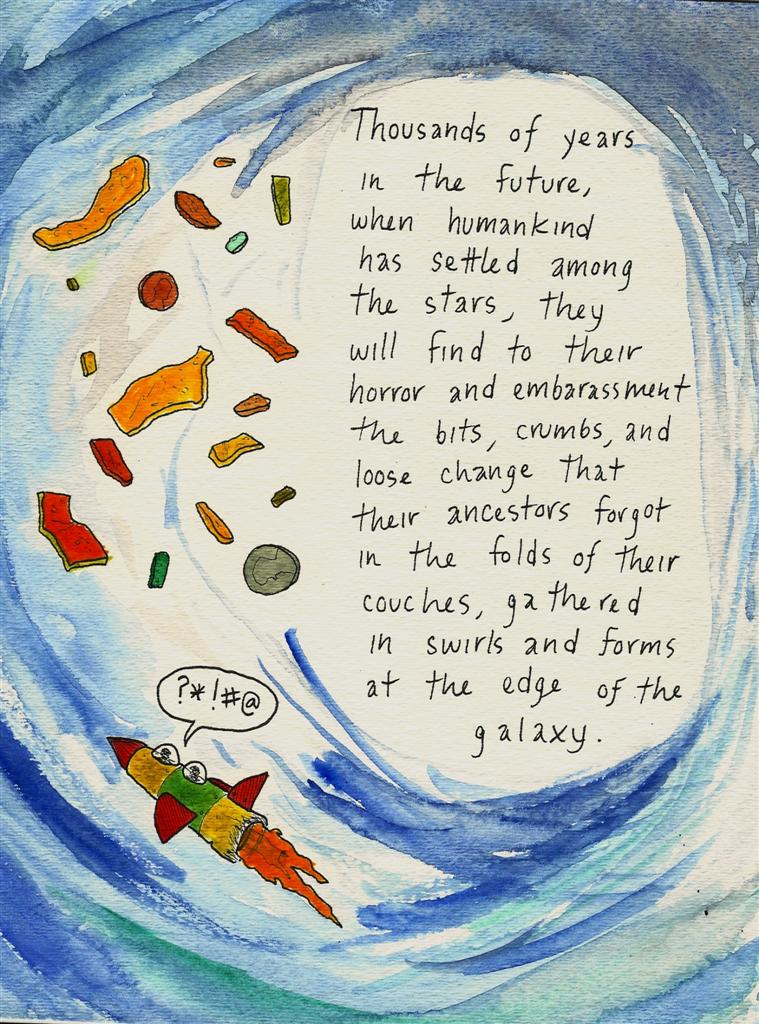 Thousands of years
in the future,
when humankind
has settled among
the stars, they
will find to their
horror and embarassment
the bits, crumbs, and
loose change that
their ancestors forgot
in the folds of their
couches, gathered
in swirls and forms
at the edge of the
galaxy.
?*!#@